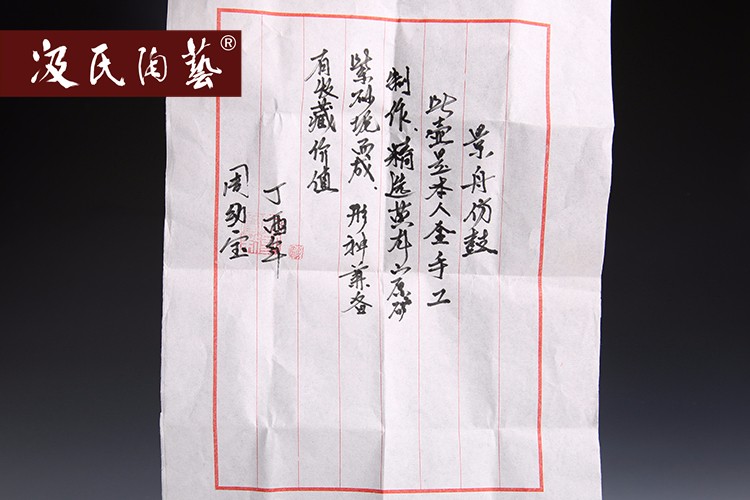 汲氏陶藝®
景舟仿鼓
此壶是本人全手工
制作、精选黄龙山原矿
紫砂泥而成、形神兼备
有收藏价值
丁酉年
周幼宝